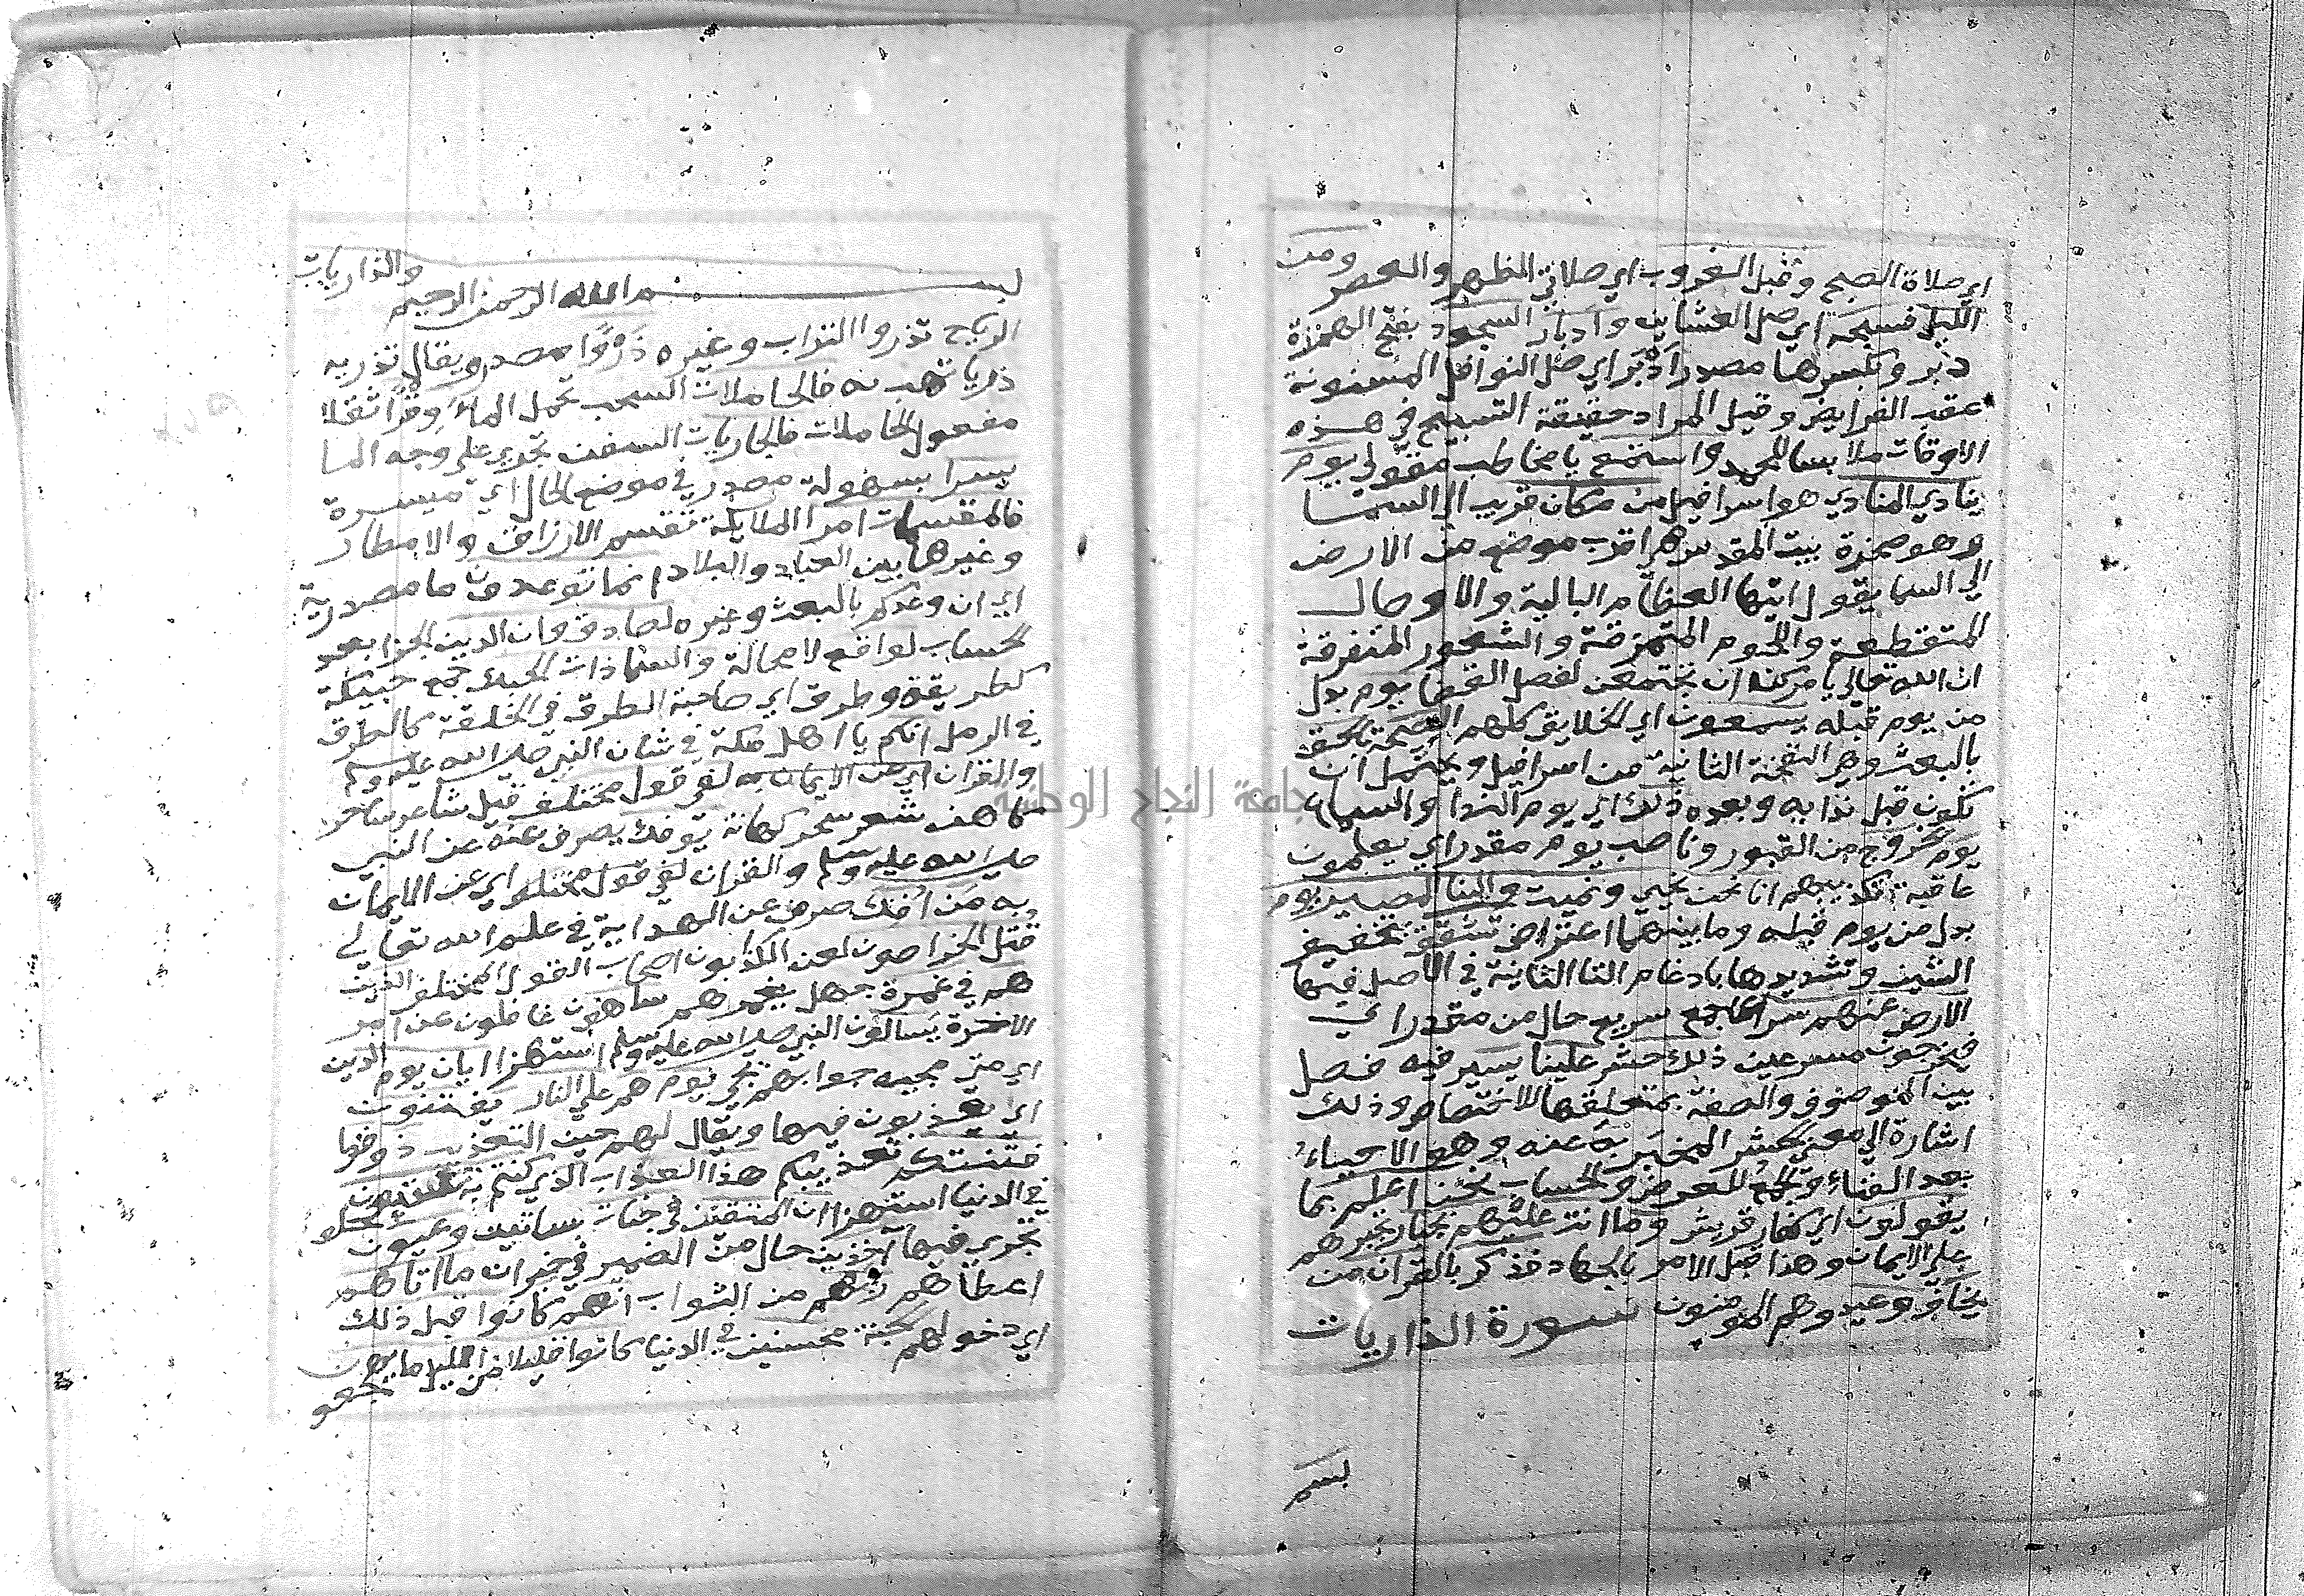 اي صلاة الصبح وقبل الغروب اي صلاتي الظهر والعصر ومن
الليل فسبحه اي صل العشايين وادبار السجود بفتح الهمزة
دبر وبكسرها مصدر ادبر اي صل النوافل المسنونة
عقب الفرايض وقيل المراد حقيقة التسبيح في هذه
الاوقات ملابسا للحمد واستمع يا مخاطب مقولي يوم
ينادي المنادي هو اسرافيل من مكان قريب الي السما
وهو صخرة بيت المقدس هي اقرب موضع من الارض
الي السما يقول ايتها العظام البالية والاوصال
المتقطعة واللحوم المتمزقة والشعور المتفرقة
ان الله تعالي يامركن ان تجتمعن لفصل القضا يوم بدل
من يوم قبله يسمعون اي الخلايق كلهم الصيحة بالحق
بالبعث وهي النفخة الثانية من اسرافيل ويحتمل ان
تكون قبل ندايه وبعده ذلك اي يوم الندا والسماع
يوم الخروج من القبور وناصب يوم مقدر اي يعلمون
عاقبة تكذيبهم انا نحن نحيي ونميت والينا المصير يوم
بدل من يوم قبله وما بينهما اعتراض تشقق بتخفيف
الشين وتشديدها بادغام التا الثانية في الاصل فيها
الارض عنهم سراعا جمع سريع حال من مقدر اي
فيخرجون مسرعين ذلك حشر علينا يسير فيه فصل
بين الموصوف والصفة بمتعلقها للاختصاص وذلك
اشارة الي معني الحشر المخبر به عنه وهو الاحياء
بعد الفناء والجمع للعرض والحساب نحن اعلم بما
يقولون اي كفار قريش وما انت عليهم بجبار تجبرهم
علي الايمان وهذا قبل الامر بالجهاد فذكر بالقران من
يخاف وعيد وهم المومنون سورة الذاريات
بسم
بسم الله الرحمن الرحيم والذاريات
الرياح تذروا التراب وغيره ذروا مصدر ويقال تذريه
ذريا تهب به فالحاملات السحب تحمل الماء وقرا ثقلا
مفعول الحاملات فالجاريات السفن تجري علي وجه الما
يسرا بسهولة مصدر في موضع الحال اي ميسرة
فالمقسمات امرا الملايكة تقسم الارزاق والامطار
وغيرها بين العباد والبلاد انما توعدون ما مصدرية
اي ان وعدكم بالبعث وغيره لصادق وان الدين الجزا بعد
الحساب لواقع لا محالة والسما ذات الحبك جمع حبيكة
كطريقة وطرق اي صاحبة الطرق في الخلقة كالطرق
في الرمل انكم يا اهل مكة في شان النبي صلي الله عليه وسلم
والقران اي عن الايمان به لفي قول مختلف قيل شاعر ساحر
كاهن شعر سحر كهانة يوفك يصرف عنه عن النبي
صلي الله عليه وسلم والقران لفي قول مختلف اي عن الايمان
به من افك صرف عن الهداية في علم الله تعالي
قتل الخراصون لعن الكذابون اصحاب القول المختلف الذين
هم في غمرة جهل يغمرهم ساهون غافلون عن امر
الاخرة يسالون النبي صلي الله عليه وسلم استهزا ايان يوم الدين
اي متي مجيه جوابهم يجي يوم هم علي النار يفتنون
اي يعذبون فيها ويقال لهم حين التعذيب ذوقوا
فتنتكم تعذيبكم هذا العذاب الذي كنتم به تستعجلون
في الدنيا استهزا ان المتقين في جنات بساتين وعيون
تجري فيها اخذين حال من الضمير في خبر ان ما اتاهم
اعطاهم ربهم من الثواب انهم كانوا قبل ذلك
اي دخولهم الجنة محسنين في الدنيا كانوا قليلا من الليل ما يهجعون
جامعة النجاح الوطنية